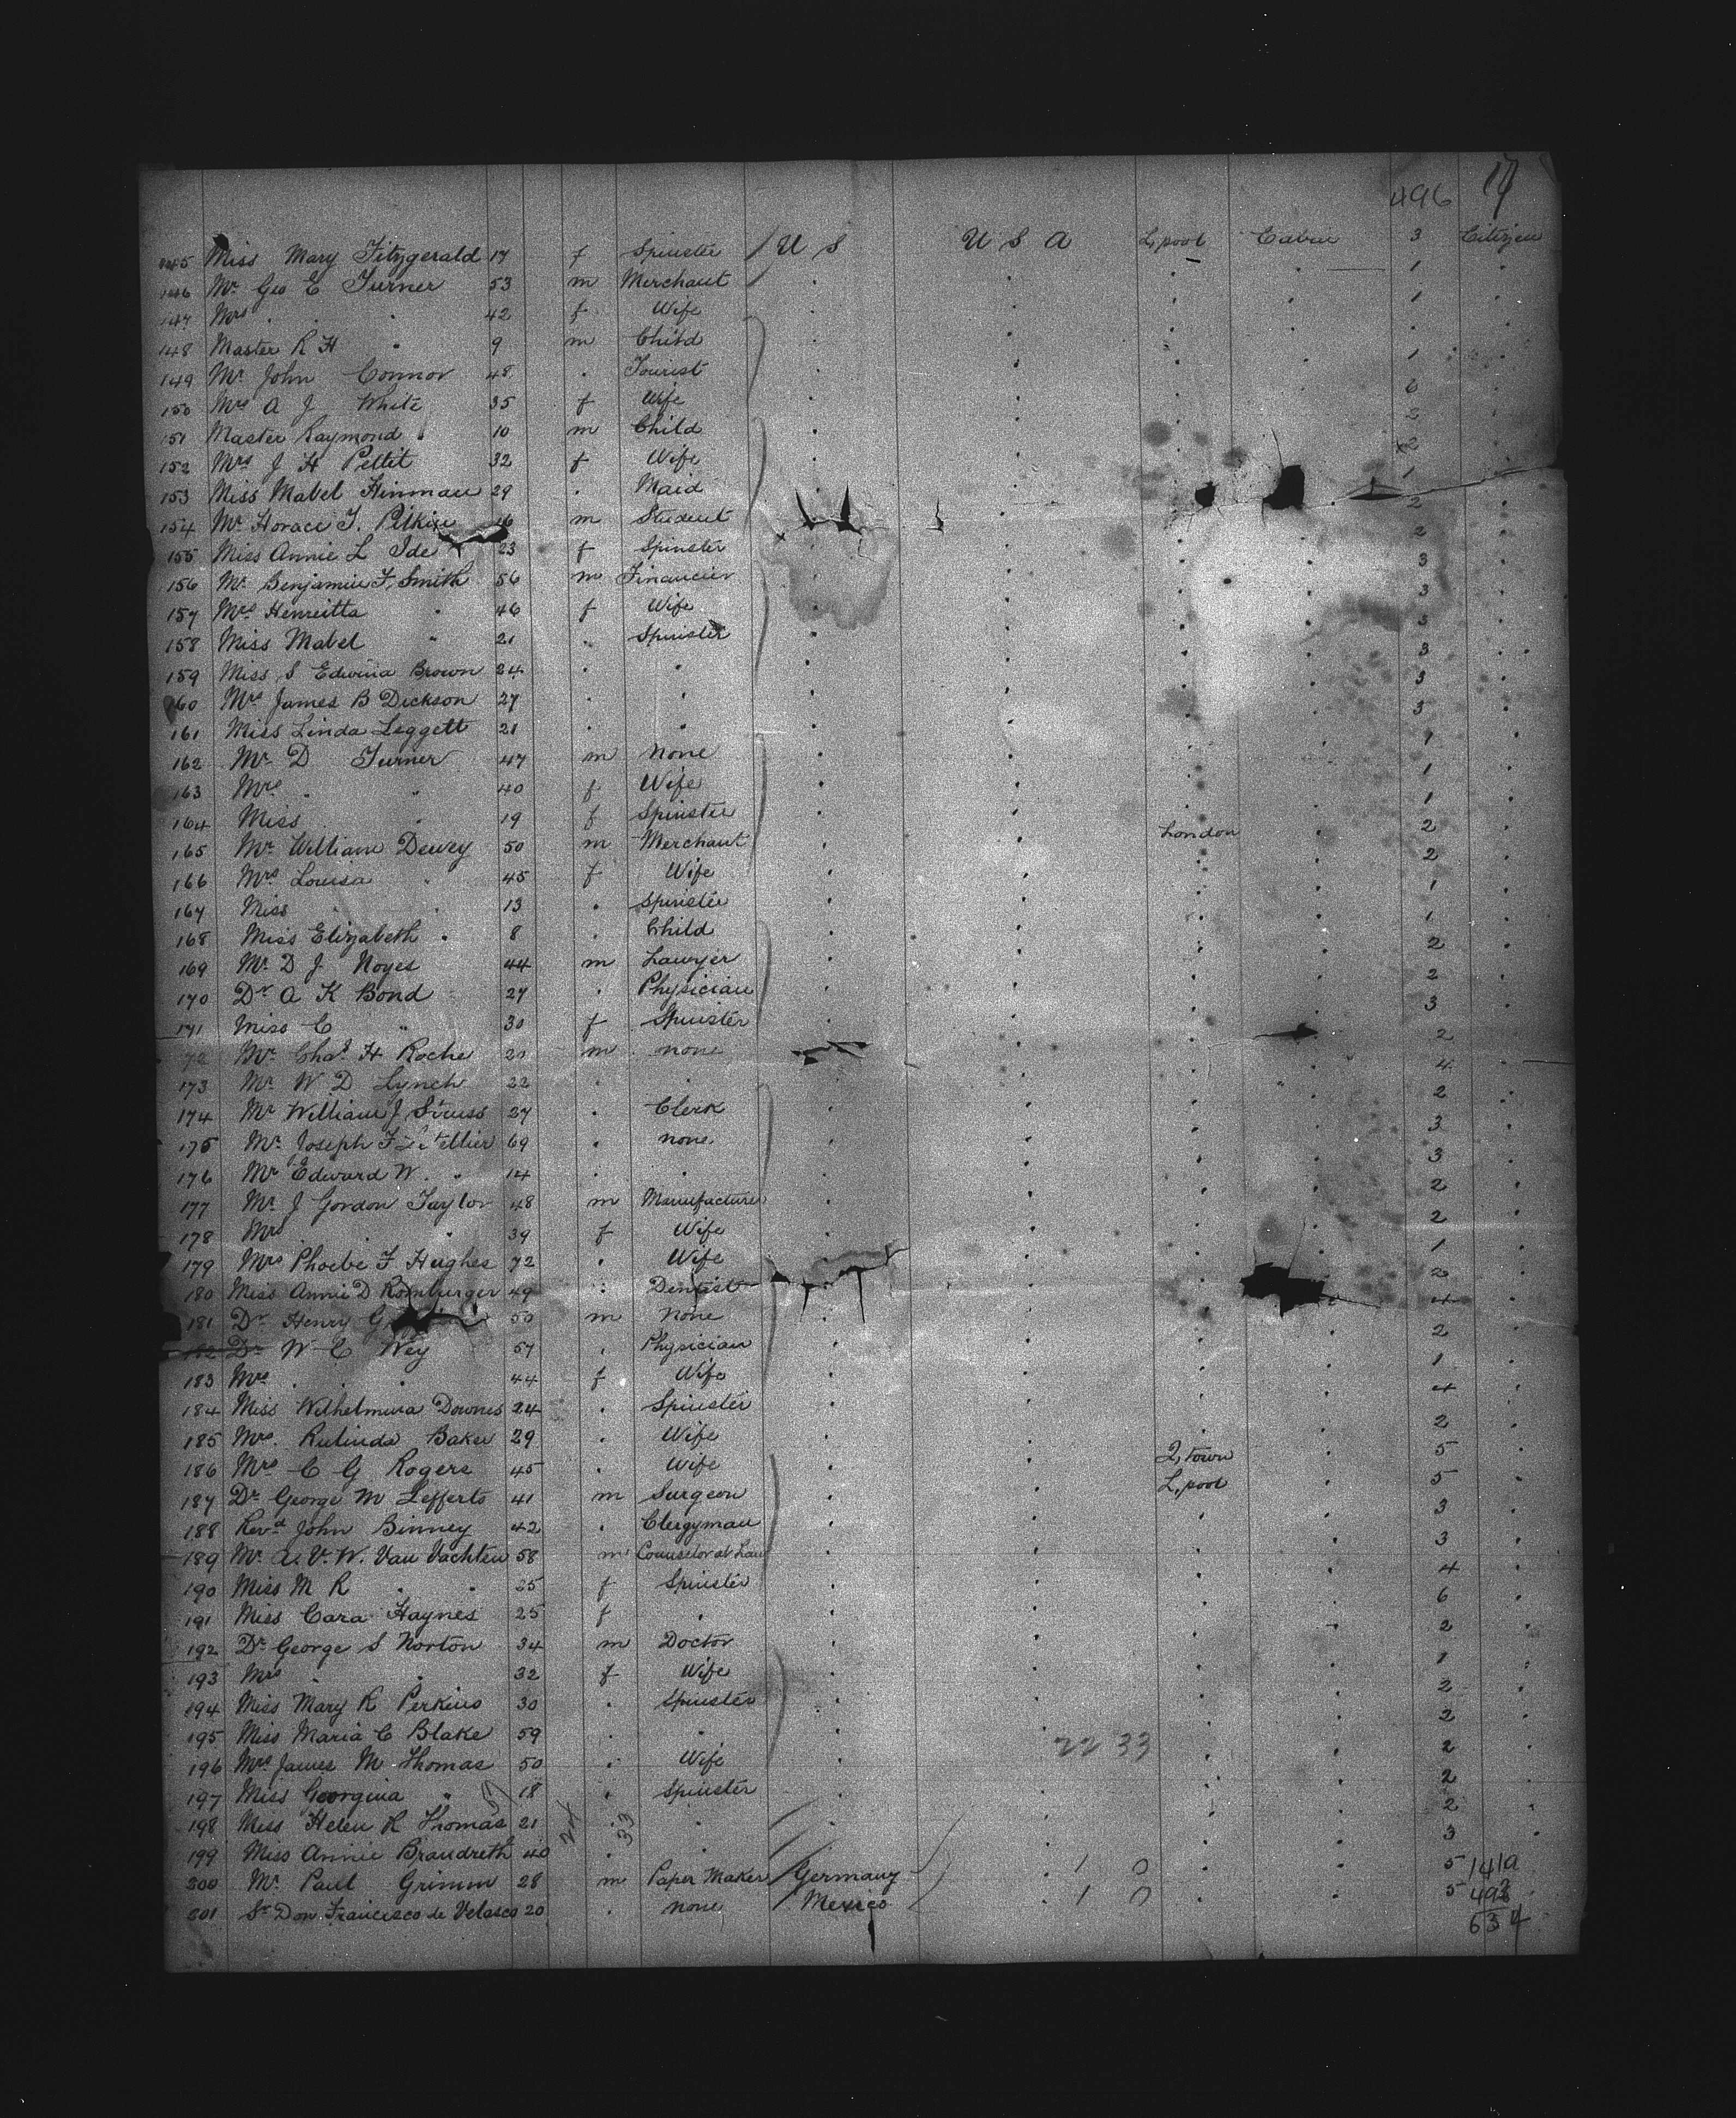 496 17
145 Miss Mary Fitzgerald 17 f Spinster U S U S A L,pool Cabin 3 Citizen
146 Mr Geo E Turner 53 m Merchant 1
147 Mrs " " 42 f Wife 1
148 Master R H " 9 m Child
149 Mr John Connor 48 " Tourist 1
150 Mrs A J White 35 f Wife 6
151 Master Raymond " 10 m Child 2
152 Mrs J H Pettit 32 f Wife 2
153 Miss Mabel Hinman 29 " Maid 1
154 Mr Horace T. Pitkin 16 m Student 2
155 Miss Annie L Ide 23 f Spinster 2
156 Mr Benjamin F. Smith 56 m Financier 3
157 Mrs Henreitta " 46 f Wife 3
158 Miss Mabel " 21 " Spinster 3
159 Miss S Edwina Brown 24 " " 3
160 Mrs James B Dickson 27 " " 3
161 Miss Linda Leggett 21 " " 3
162 Mr D Turner 47 m None 1
163 Mrs " " 40 f Wife 1
164 Miss " 19 f Spinster 1
165 Mr William Dewey 50 m Merchant London 2
166 Mrs Louisa " 45 f Wife 2
167 Miss " " 13 " Spinster 1
168 Miss Elizabeth " 8 " Child 1
169 Mr D J Noyes 44 m Lawyer 2
170 Dr A K Bond 27 " Physician 2
171 Miss C " 30 f Spinster 3
72 Mr Chas H Roche 21 m none 2
173 Mr W D Lynch 22 " " 4
174 Mr William J Struss 27 " Clerk 2
175 Mr Joseph F Le Tellier 69 " none 3
176 Mr Edward W. " 14 " " 3
177 Mr J Gordon Taylor 48 m Manufacturer 2
178 Mrs " " 39 f Wife 2
179 Mrs Phoebe F Hughes 72 " Wife 1
180 Miss Annie D Romburger 49 " Dentist 2
181 Dr Henry G 50 m None 4
182 Dr W C Wey 57 " Physician 2
183 Mrs " " 44 f Wife 1
184 Miss Wilhelmina Downes 24 " Spinster 4
185 Mrs. Rulinda Baker 29 " Wife 2
186 Mrs C G Rogers 45 " Wife Q,town 5
187 Dr George M Lefferts 41 m Surgeon L,pool 5
188 Revd John Binney 42 " Clergyman 3
189 Mr A. V. W. Van Vachten 58 m Counselor at Law 3
190 Miss M R " " 25 f Spinster 4
191 Miss Cara Haynes 25 f " 6
192 Dr George S Norton 34 m Doctor 2
193 Mrs " " 32 f Wife 1
194 Miss Mary R Perkins 30 " Spinster 2
195 Miss Maria C Blake 59 " " 22 33 2
196 Mrs James M Thomas 50 " Wife 2
197 Miss Georgina " 18 " Spinster 2
198 Miss Helen R Thomas 21 " " 2
199 Miss Annie Brandreth 40 " " 3
200 Mr Paul Grimm 28 m Paper Maker Germany " 1 0 5 141a
201 Sr Don Francisco de Velasco 20 " none Mexico " 1 0 5 493
634